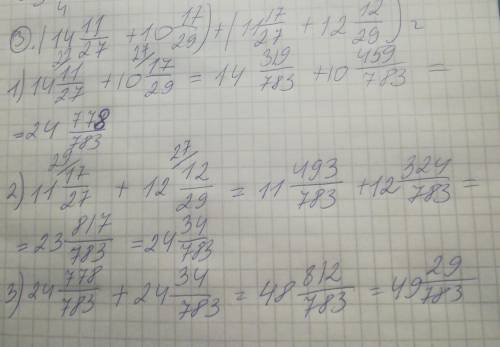 ③.(14 11/27 + 10 17/29) + (11 17/27 + 12 12/29) =
1) 14 11/27 + 10 17/29 = 14 319/783 + 10 459/783 =
= 24 778/783
2) 11 17/27 + 12 12/29 = 11 493/783 + 12 324/783 =
= 23 817/783 = 24 34/783
3) 24 778/783 + 24 34/783 = 48 812/783 = 49 29/783